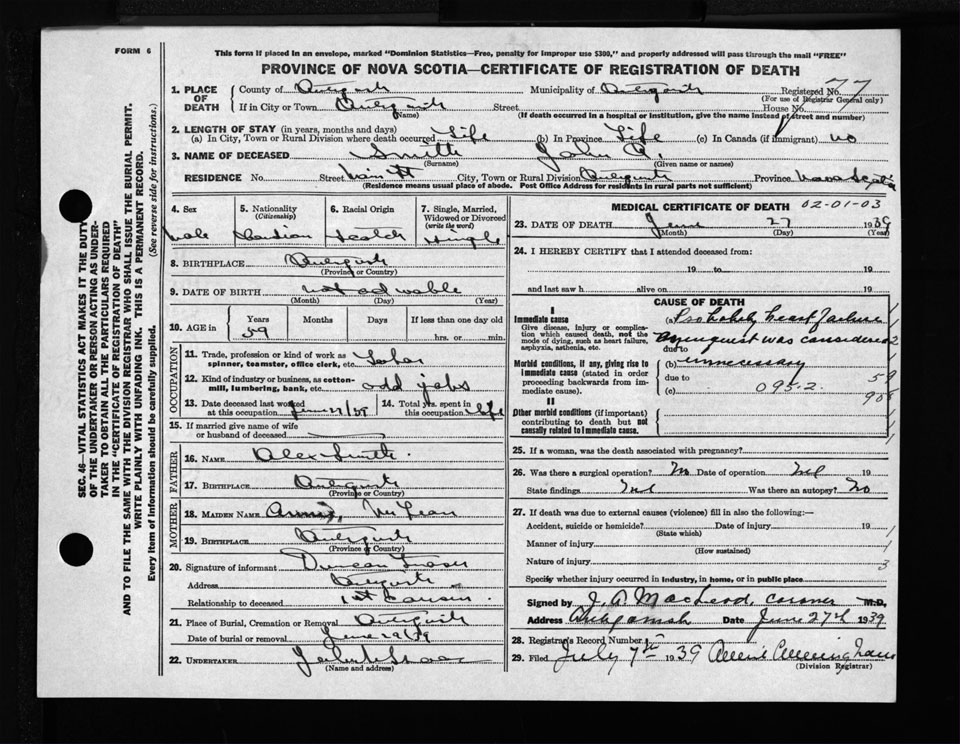 FORM 6
This form if placed in an envelope, marked "Dominion Statistics—Free, penalty for improper use $300," and properly addressed will pass through the mail "FREE"
PROVINCE OF NOVA SCOTIA—CERTIFICATE OF REGISTRATION OF DEATH
SEC. 46—VITAL STATISTICS ACT MAKES IT THE DUTY
OF THE UNDERTAKER OR PERSON ACTING AS UNDER-
TAKER TO OBTAIN ALL THE PARTICULARS REQUIRED
IN THE "CERTIFICATE OF REGISTRATION OF DEATH"
AND TO FILE THE SAME WITH THE DIVISION REGISTRAR WHO SHALL ISSUE THE BURIAL PERMIT.
WRITE PLAINLY WITH UNFADING INK. THIS IS A PERMANENT RECORD.
Every item of information should be carefully supplied. (See reverse side for instructions.)
1. PLACE OF DEATH
County of Antigonish Municipality of Antigonish Registered No. 77
(For use of Registrar General only)
If in City or Town Antigonish Street House No.
(Name) (If death occurred in a hospital or institution, give the name instead of street and number)
2. LENGTH OF STAY (in years, months and days)
(a) In City, Town or Rural Division where death occurred Life (b) In Province Life (c) In Canada (if immigrant) no
3. NAME OF DECEASED Smith John
(Surname) (Given name or names)
RESIDENCE No. Street Main St City, Town or Rural Division Antigonish Province Nova Scotia
(Residence means usual place of abode. Post Office Address for residents in rural parts not sufficient)
4. Sex Male
5. Nationality (Citizenship) Canadian
6. Racial Origin Scotch
7. Single, Married, Widowed or Divorced (write the word) single
8. BIRTHPLACE Antigonish
(Province or Country)
9. DATE OF BIRTH not
(Month) (Day) (Year)
10. AGE in Years Months Days If less than one day old
59 hrs. or min.
OCCUPATION
11. Trade, profession or kind of work as spinner, teamster, office clerk, etc. Labor
12. Kind of industry or business, as cotton-mill, lumbering, bank, etc. odd jobs
13. Date deceased last worked at this occupation June 27/39
14. Total yrs. spent in this occupation life
15. If married give name of wife or husband of deceased
FATHER
16. NAME Alex Smith
17. BIRTHPLACE Antigonish
(Province or Country)
MOTHER
18. MAIDEN NAME Annie McLean
19. BIRTHPLACE Antigonish
(Province or Country)
20. Signature of informant Duncan Fraser
Address Antigonish
Relationship to deceased 1st cousin
21. Place of Burial, Cremation or Removal Antigonish
Date of burial or removal June 29/39
22. UNDERTAKER
(Name and address)
MEDICAL CERTIFICATE OF DEATH 02-01-03
23. DATE OF DEATH June 27 1939
(Month) (Day) (Year)
24. I HEREBY CERTIFY that I attended deceased from:
19 to 19
and last saw h alive on 19
CAUSE OF DEATH
I
Immediate cause
Give disease, injury or complication which caused death, not the mode of dying, such as heart failure, asphyxia, asthenia, etc.
(a) Probably heart failure
An inquest was considered
due to
Morbid conditions, if any, giving rise to immediate cause (stated in order proceeding backwards from immediate cause).
(b) unnecessary
due to
(c) 095-2.
II
Other morbid conditions (if important) contributing to death but not causally related to immediate cause.
25. If a woman, was the death associated with pregnancy?
26. Was there a surgical operation? No Date of operation Nil 19
State findings Nil Was there an autopsy? No
27. If death was due to external causes (violence) fill in also the following:—
Accident, suicide or homicide? Date of injury 19
(State which)
Manner of injury
(How sustained)
Nature of injury
Specify whether injury occurred in industry, in home, or in public place
Signed by J. A. MacLeod, coroner M.D.
Address Antigonish Date June 27th 1939
28. Registrar's Record Number
29. Filed July 7th 1939 Allene Cunningham
(Division Registrar)